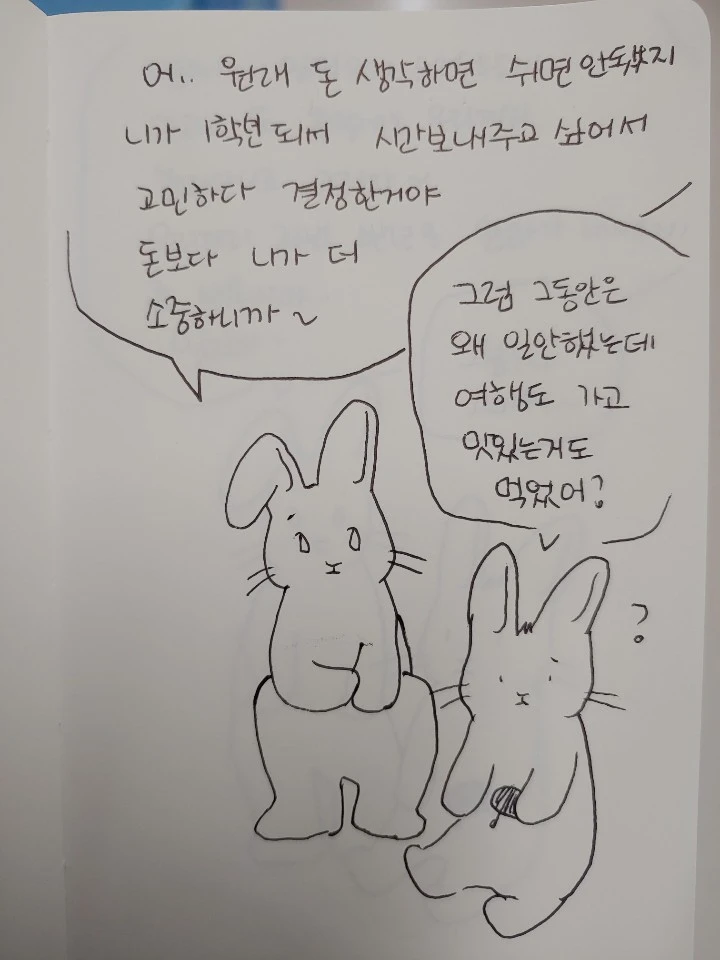 어.. 원래 돈 생각하면 쉬면 안되지
니가 1학년 되서 시간보내주고 싶어서
고민하다 결정한거야
돈보다 니가 더
소중하니까~
그럼 그동안은
왜 일안했는데
여행도 가고
맛있는거도
먹었어?
?